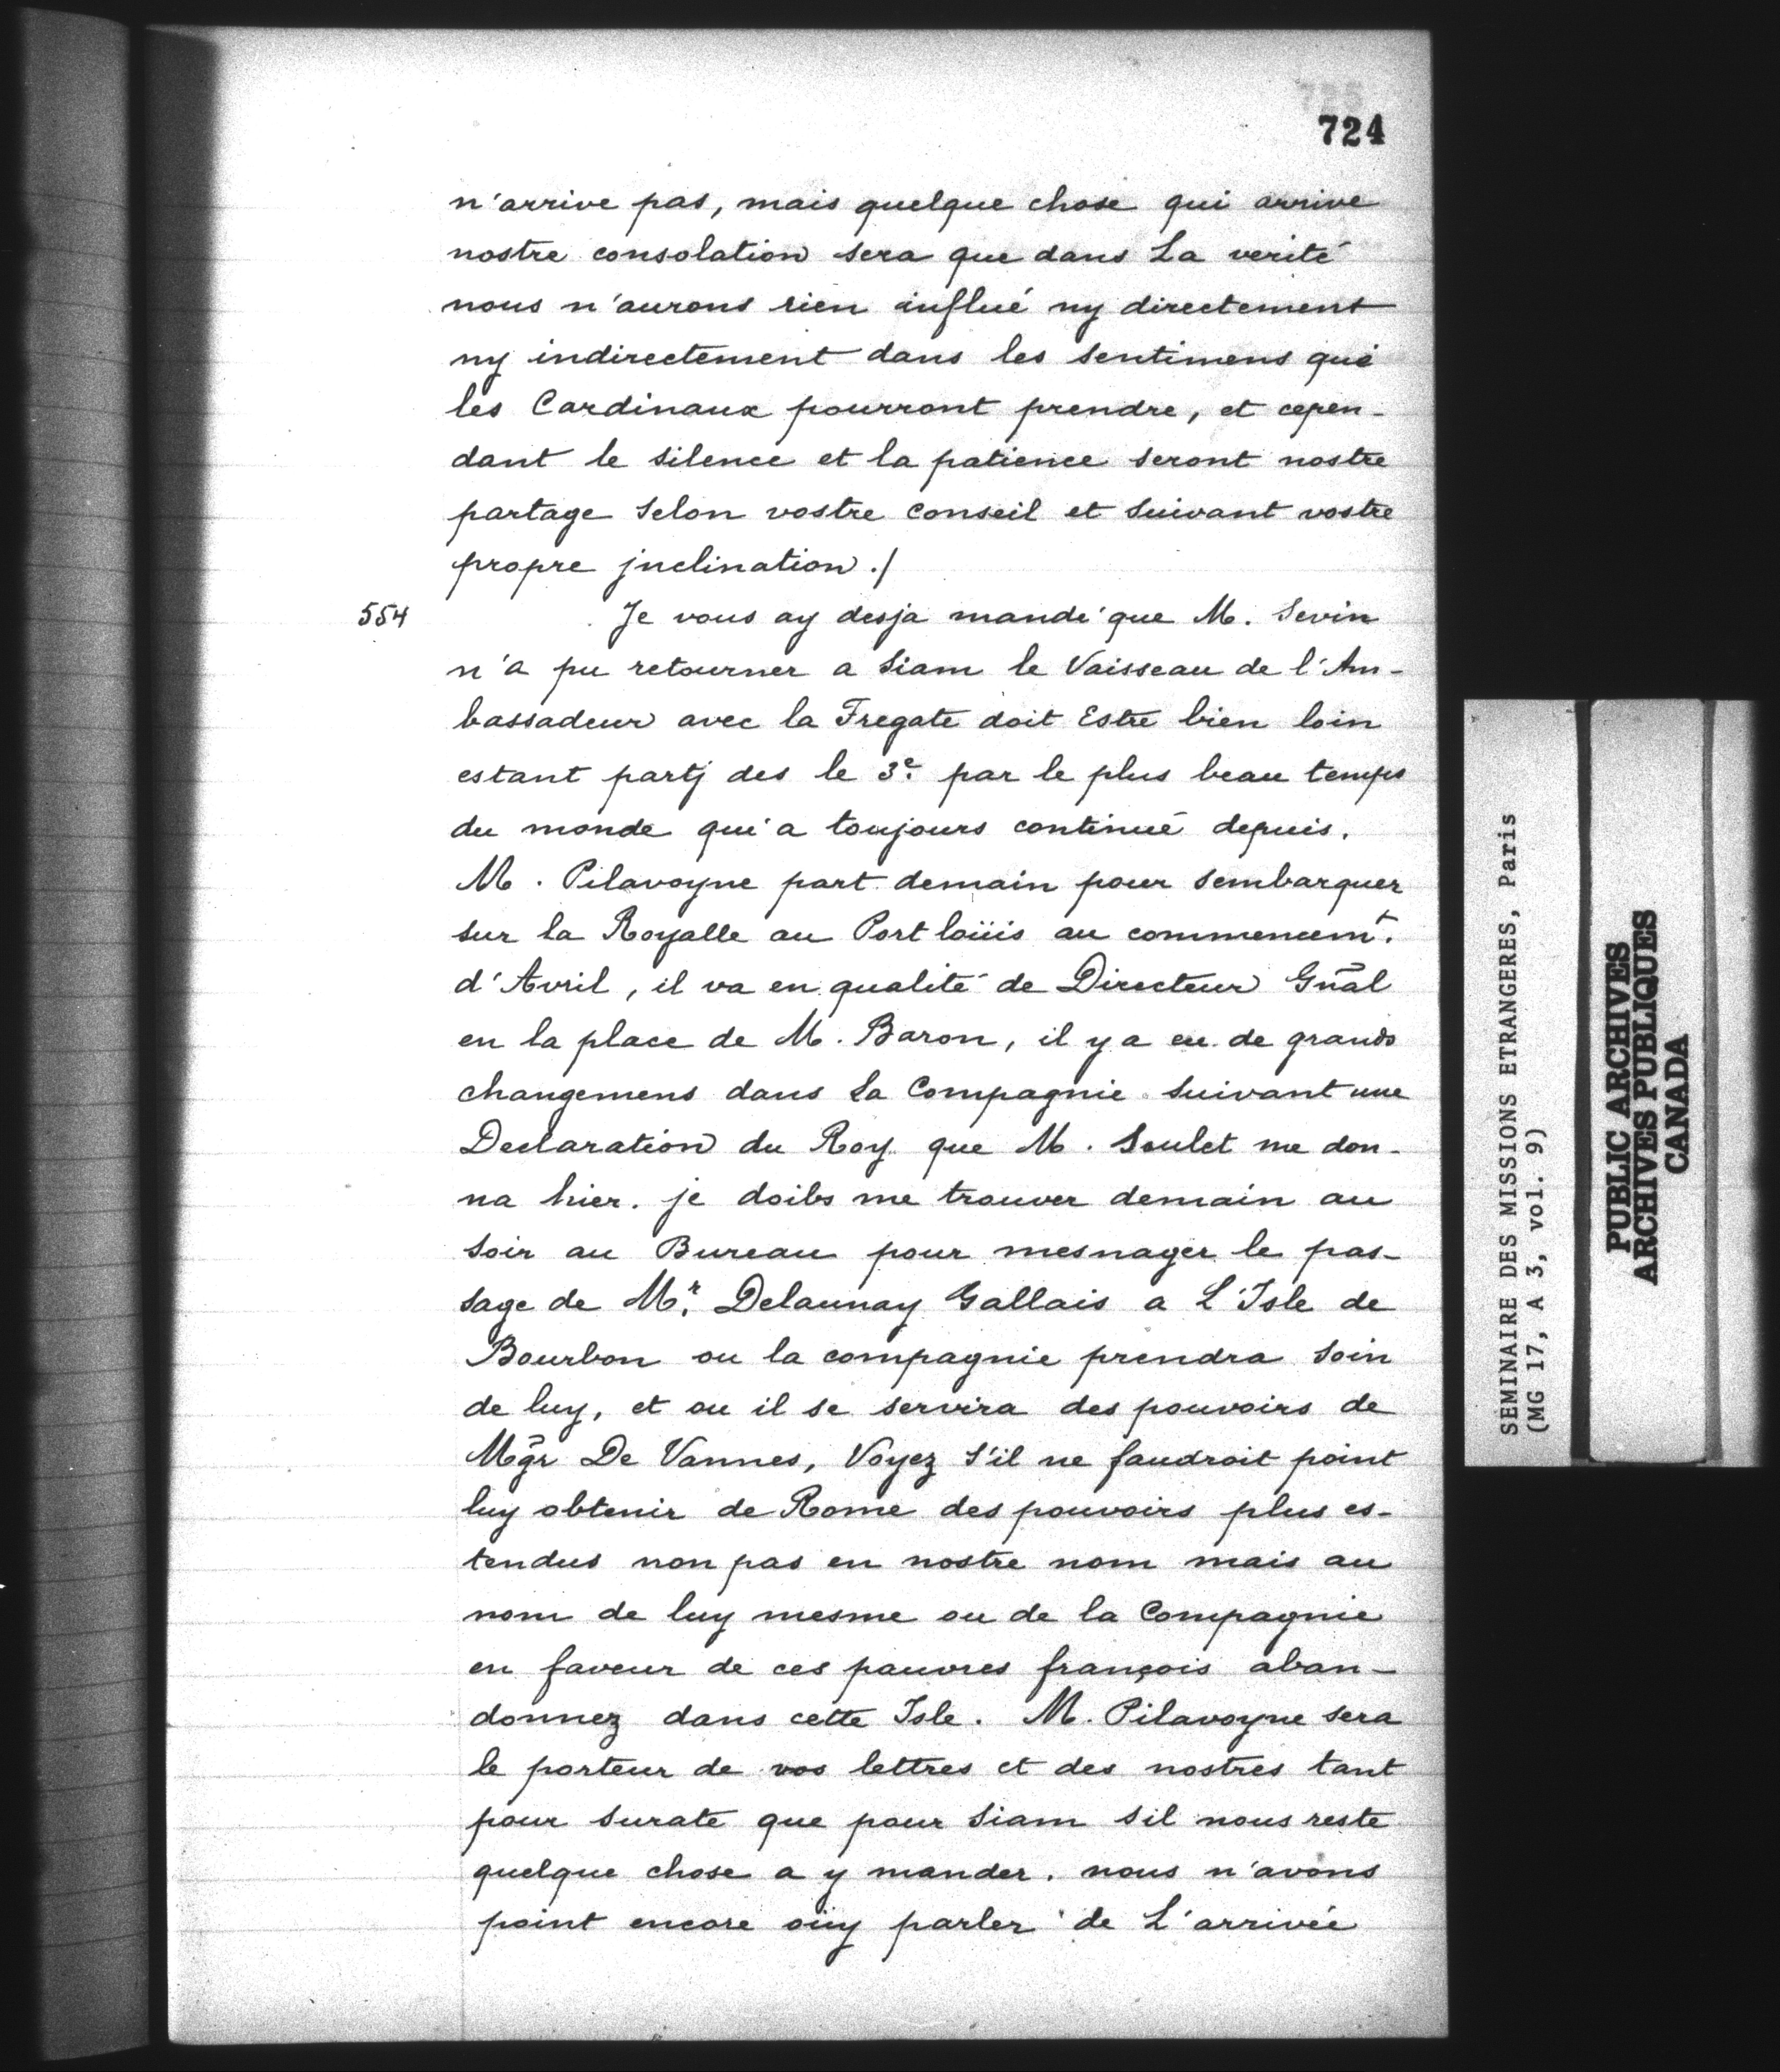 725
724
n'arrive pas, mais quelque chose qui arrive
nostre consolation sera que dans La verité
nous n'aurons rien influé ny directement
ny indirectement dans les sentimens que
les Cardinaux pourront prendre, et cepen-
dant le silence et la patience seront nostre
partage selon vostre conseil et suivant vostre
propre jnclination ./
554
Je vous ay desja mandé que M. Sevin
n'a pu retourner a Siam le Vaisseau de l'Am-
bassadeur avec la Fregate doit Estre bien loin
estant partj des le 3e. par le plus beau temps
du monde qui a toujours continué depuis.
M. Pilavoyne part demain pour sembarquer
sur la Royalle au Port loüis au commencemt.
d'Avril, il va en qualité de Directeur Gnãl
en la place de M. Baron, il y a eu de grands
changemens dans la Compagnie suivant une
Declaration du Roy que M. Soulet me don-
na hier. je doibs me trouver demain au
soir au Bureau pour mesnager le pas-
sage de Mr. Delaunay Gallais a L'Isle de
Bourbon ou la compagnie prendra soin
de luy, et ou il se servira des pouvoirs de
Mg̃r De Vannes, Voyez s'il ne faudroit point
luy obtenir de Rome des pouvoirs plus es-
tendus non pas en nostre nom mais au
nom de luy mesme ou de la Compagnie
en faveur de ces pauvres françois aban-
donnez dans cette Isle. M. Pilavoyne sera
le porteur de vos lettres et des nostres tant
pour Surate que pour Siam sil nous reste
quelque chose a y mander. nous n'avons
point encore oüy parler de L'arrivée
SEMINAIRE DES MISSIONS ETRANGERES, Paris
(MG 17, A 3, vol. 9)
PUBLIC ARCHIVES
ARCHIVES PUBLIQUES
CANADA